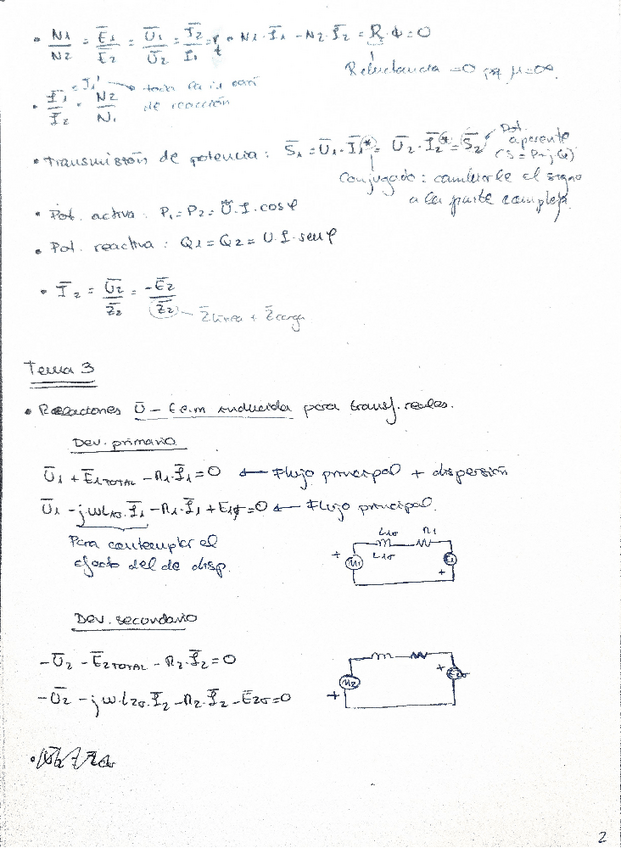 • N1/N2 = Ē1/Ē2 = Ū1/Ū2 = Ī2/Ī1 = rt • N1·Ī1 - N2·Ī2 = R·ϕ = 0
Reluctancia = 0 pq μ=∞.
• Ī1/Ī2 = N2/N1
de reacción
• Transmisión de potencia: S̄1 = Ū1·Ī1* = Ū2·Ī2* = S̄2
Pot. aparente
(S = P+jQ)
Conjugado: cambiarle el signo
a la parte compleja.
• Pot. activa: P1=P2= U·I·cosφ
• Pot. reactiva: Q1=Q2= U·I·senφ
• Ī2 = Ū2/Z̄2 = -Ē2/Z̄2
Z̄línea + Z̄carga
Tema 3
• Relaciones Ū - f.e.m inducida para transf. reales.
Dev. primario
Ū1 + Ē1TOTAL - R1·Ī1 = 0 ← Flujo principal + dispersión
Ū1 - jωL1σ·Ī1 - R1·Ī1 + E1ϕ = 0 ← Flujo principal.
Para contemplar el
efecto del de disp.
L1σ R1
L1σ
+ U1 E1 +
Dev. secundario
-Ū2 - Ē2TOTAL - R2·Ī2 = 0
-Ū2 - jω·L2σ·Ī2 - R2·Ī2 - Ē2σ = 0
+ U2 +
2